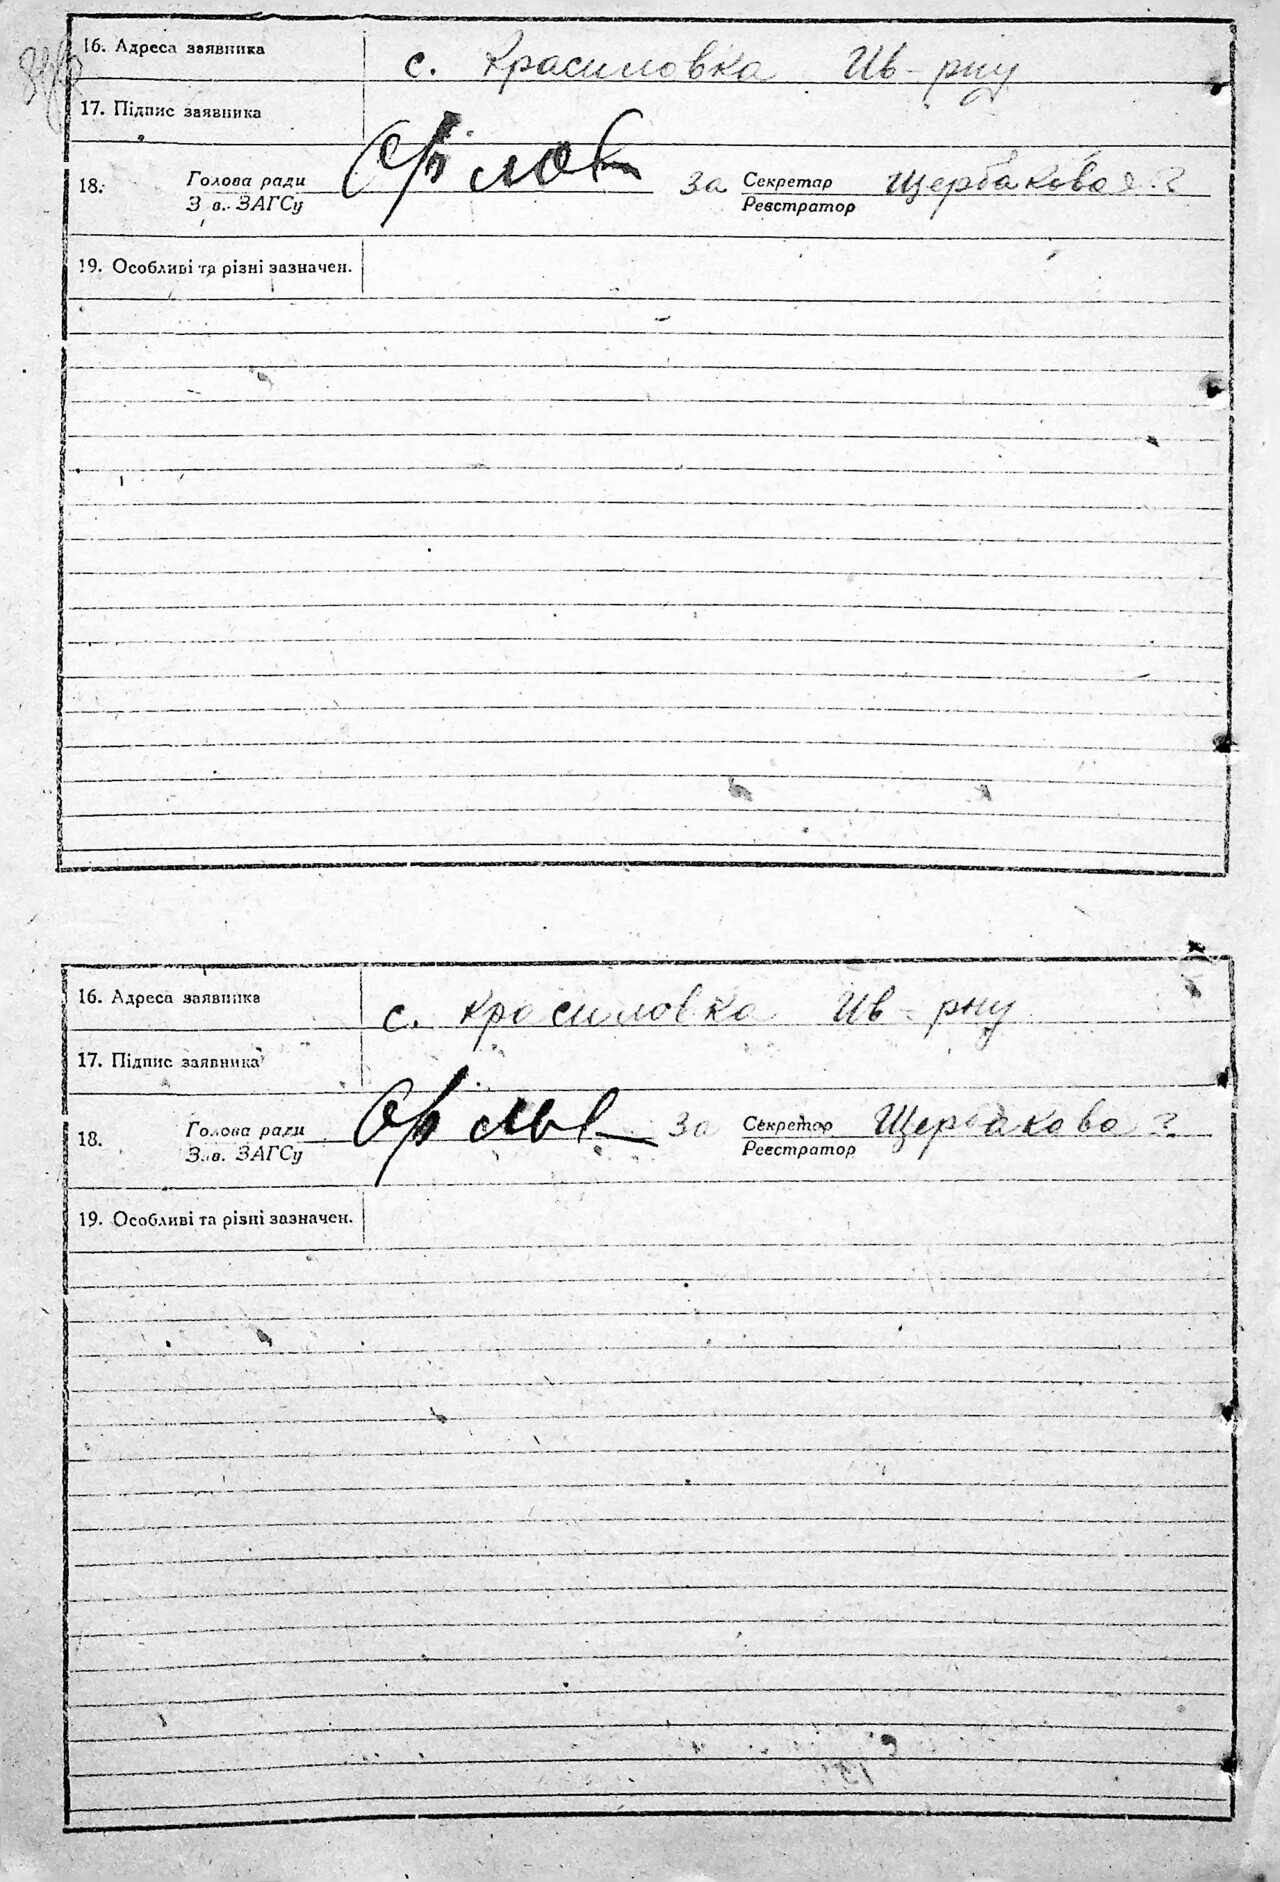 16. Адреса заявника с. Красиловка Ив-рну
17. Підпис заявника
18. Голова ради За Секретар Щербакова
З в. ЗАГСу Реєстратор
19. Особливі та різні зазначен.
16. Адреса заявника с. Красиловка Ив-рну
17. Підпис заявника
18. Голова ради За Секретар Щербакова
З.в. ЗАГСу Реєстратор
19. Особливі та різні зазначен.